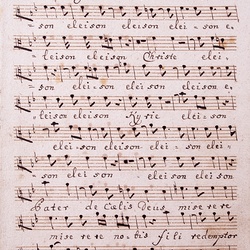 son eleison elei=son e,
leison eleison Christe elei,
son elei=son eleison e,
leison eleison Kyrie elei=son
elei=son eleison elei=
son elei son eleison
Pater de Cælis Deus, miserere
miserere nobis fili redemptor